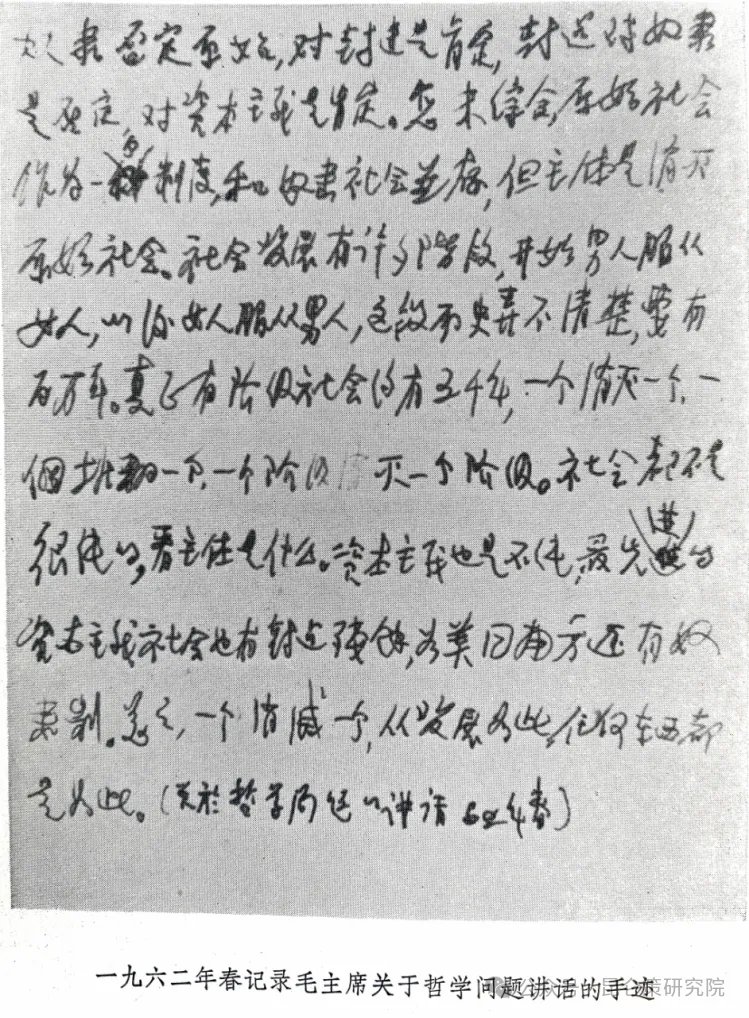 奴隶否定原始,对封建是肯定,封建对奴隶
是否定,对资本主义是肯定。怎末综合,原始社会
作为一个制度,和奴隶社会並存,但主体是消灭
原始社会。社会发展有许多阶段,开始男人服从
女人,以后女人服从男人,这段历史弄不清楚,要有
百万年。真正有阶级社会约有五千年,一个消灭一个,一
個推翻一个,一个阶级消灭一个阶级。社会都不是
很纯的,看主体是什么。资本主义也是不纯,最先进的
资本主义社会也有封建残余,如美国南方还有奴
隶制。总之,一个消灭一个,从发展如此,任何东西都
是如此。(关於哲学问题的讲话 62年春)
一九六二年春记录毛主席关于哲学问题讲话的手迹
公众号·昆仑策研究院